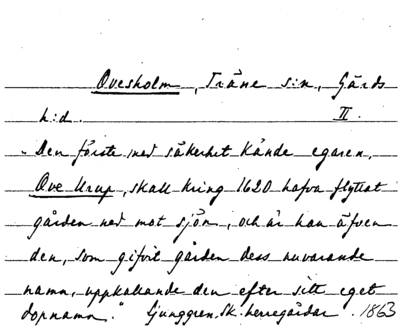 Ovesholm, Träne s:n, Gärds
h:d. II.
"Den förste med säkerhet kände egaren,
Ove Urup, skall kring 1620 hafva flyttat
gården ned mot sjön, och är han äfven
den, som gifvit gården dess nuvarande
namn, uppkallande den efter sitt eget
dopnamn." Ljunggren. Sk. herregårdar. 1863